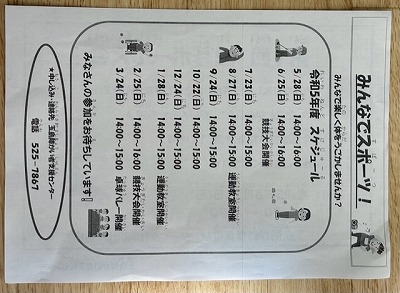 みんなでスポーツ!
みんなで楽しく体をうごかしませんか?
令和5年度 スケジュール
5/28(日) 14:00~16:00
6/25(日) 14:00~16:00
競技大会開催
7/23(日) 14:00~15:00
8/27(日) 14:00~15:00 運動教室開催
9/24(日) 14:00~15:00
10/22(日) 14:00~15:00
12/24(日) 14:00~15:00
1/28(日) 14:00~15:00 運動教室開催
2/25(日) 14:00~16:00 競技大会開催
3/24(日) 14:00~15:00 卓球バレー開催
みなさんの参加をお待ちしています!
★申し込み・連絡先 玉島障がい者支援センター
電話 525-7867